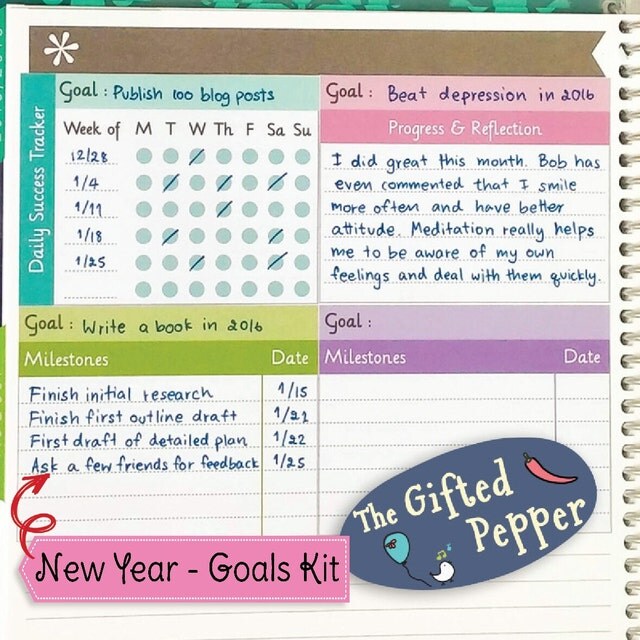 Goal : Publish 100 blog posts
Daily Success Tracker
Week of M T W Th F Sa Su
12/28
1/4
1/11
1/18
1/25
Goal : Beat depression in 2016
Progress & Reflection
I did great this month. Bob has
even commented that I smile
more often and have better
attitude. Meditation really helps
me to be aware of my own
feelings and deal with them quickly.
Goal : Write a book in 2016
Milestones Date
Finish initial research 1/15
Finish first outline draft 1/21
First draft of detailed plan 1/22
Ask a few friends for feedback 1/25
Goal :
Milestones Date
The Gifted
Pepper
New Year - Goals Kit